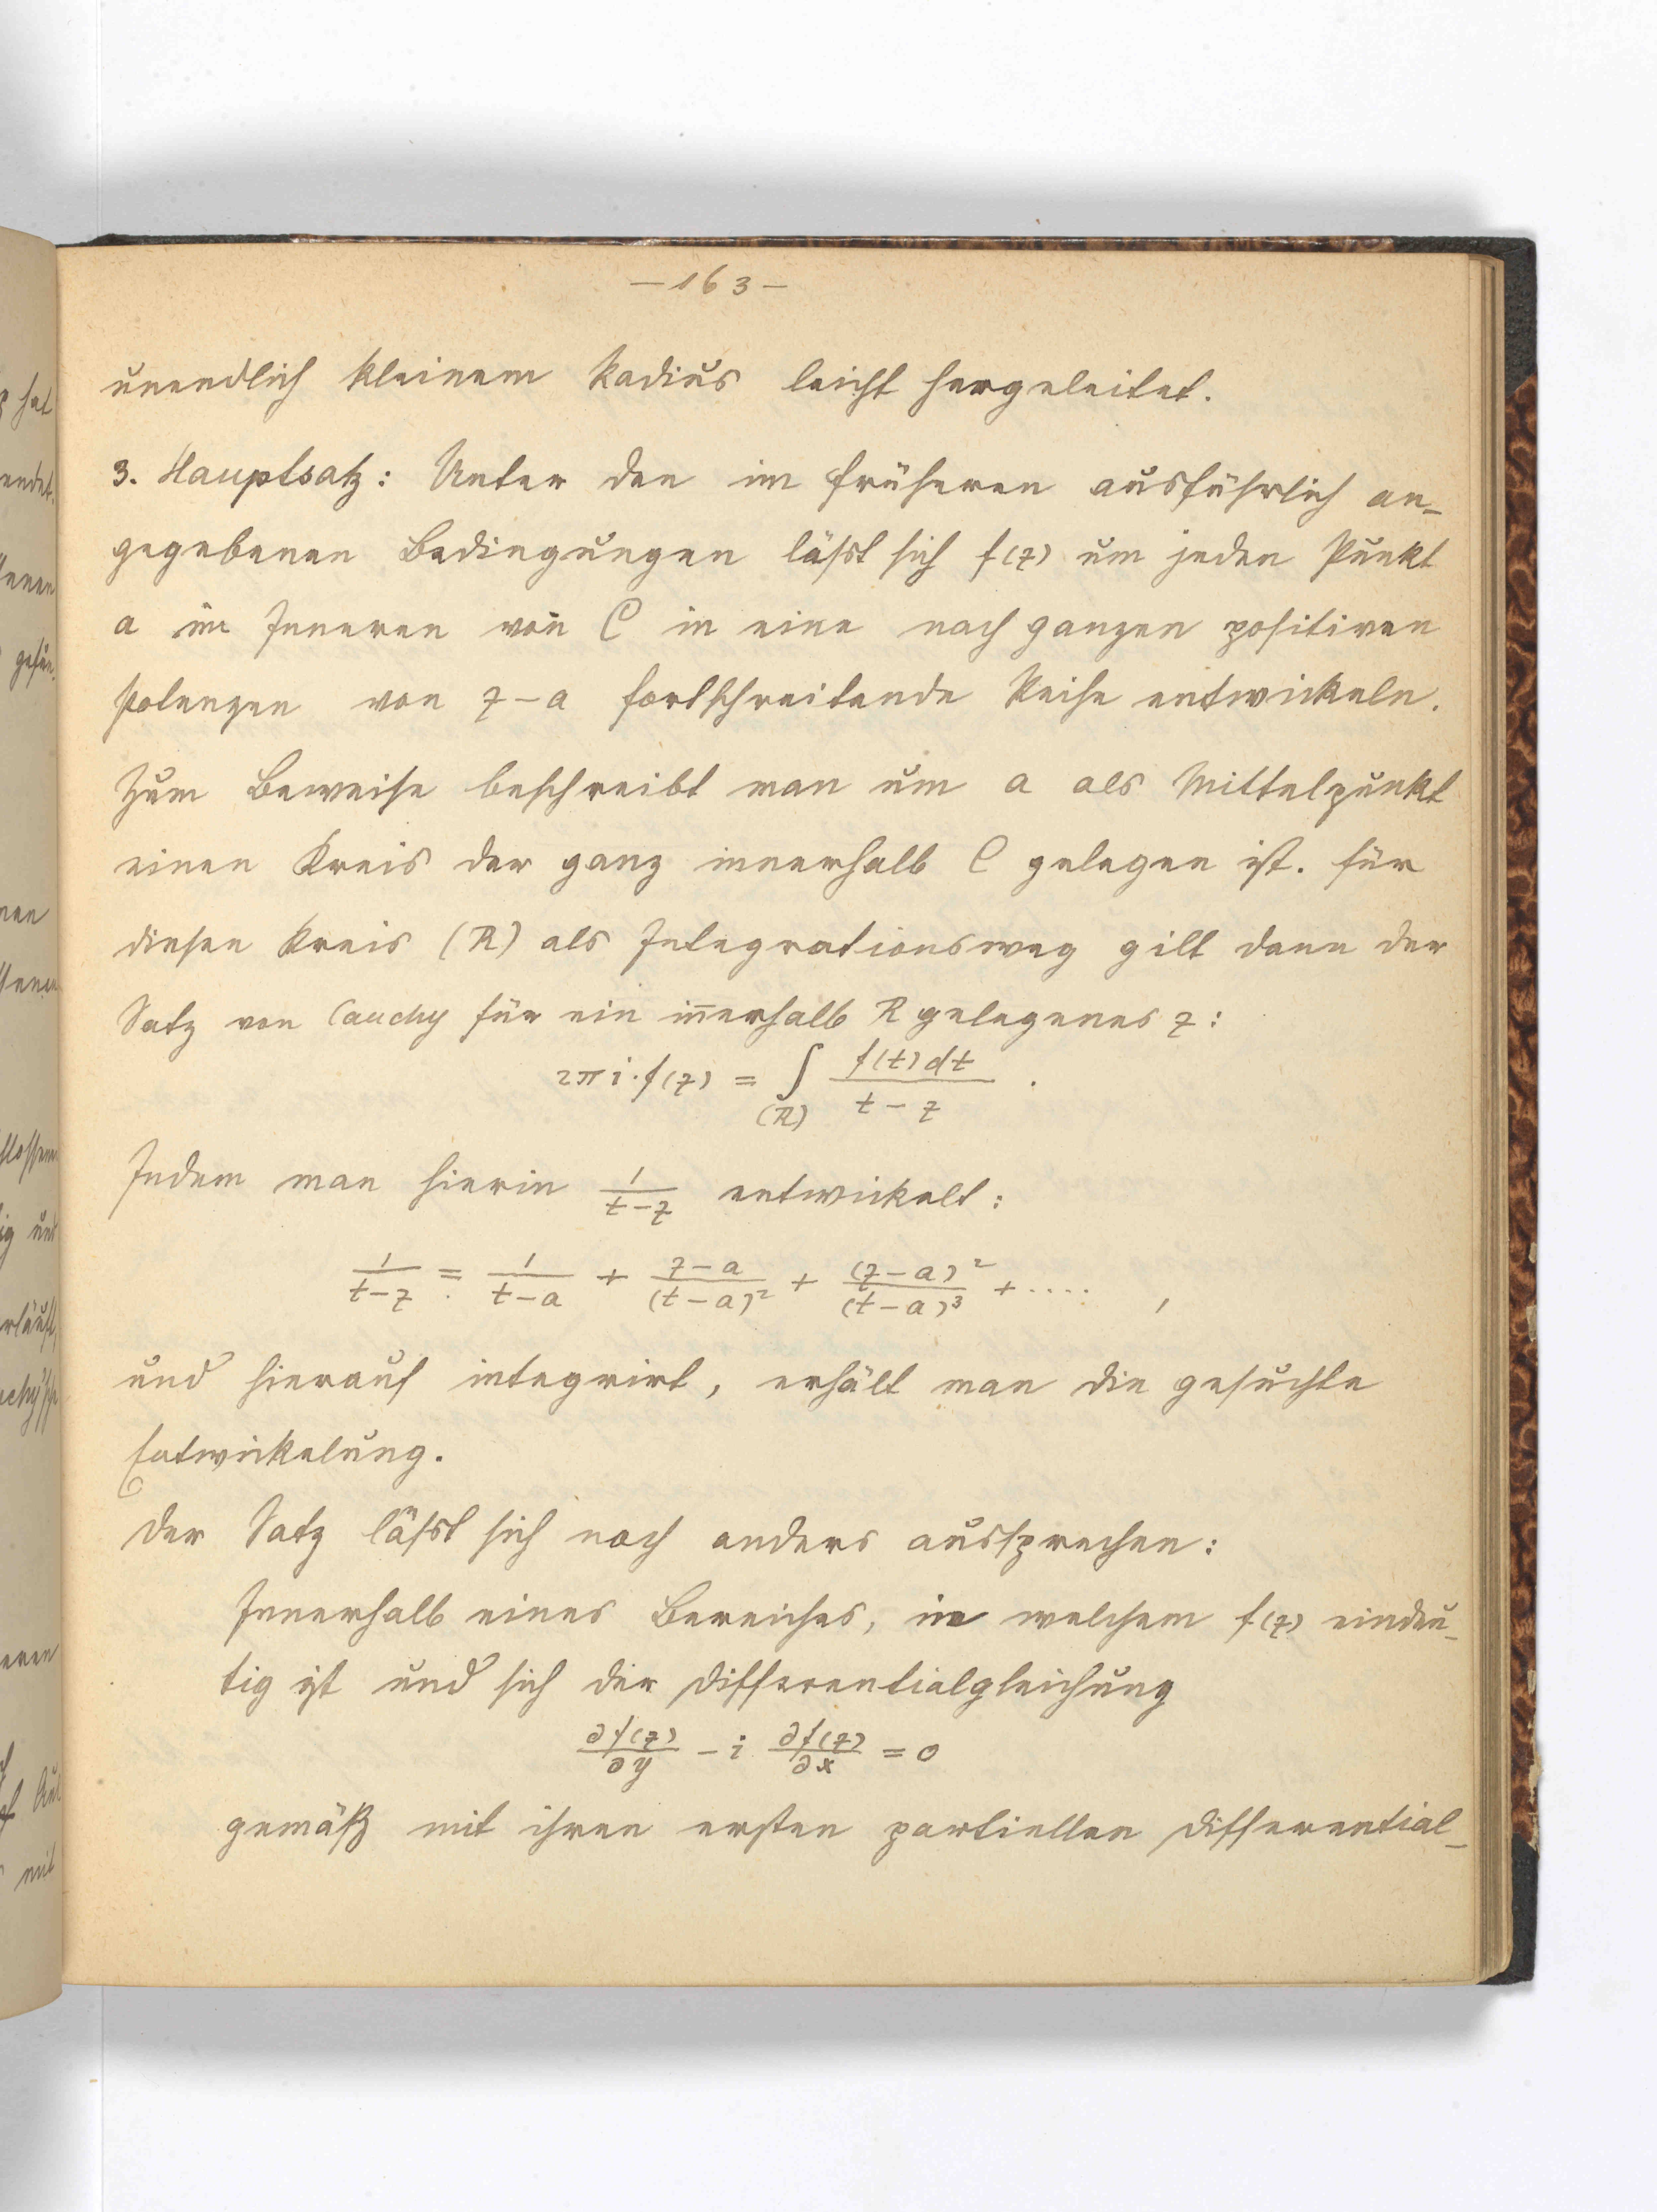 — 163 —
unendlich kleinem Radius leicht hergeleitet.
3. Hauptsatz: Unter den im früheren ausführlich an-
gegebenen Bedingungen läßt sich f(z) um jeden Punkt
a im Inneren von C in eine nach ganzen positiven
Potenzen von z-a fortschreitende Reihe entwickeln.
Zum Beweise beschreibt man um a als Mittelpunkt
einen Kreis der ganz innerhalb C gelegen ist. Für
diesen Kreis (R) als Integrationsweg gilt dann der
Satz von Cauchy für ein in̄erhalb R gelegenes z:
2πi·f(z) = ∫_(R) f(t)dt / (t-z) .
Indem man hierin 1/(t-z) entwickelt:
1/(t-z) = 1/(t-a) + (z-a)/(t-a)² + (z-a)²/(t-a)³ + .... ,
und hierauf integrirt, erhält man die gesuchte
Entwickelung.
Der Satz läßt sich noch anders aussprechen:
Innerhalb eines Bereiches, in welchem f(z) eindeu-
tig ist und sich der Differentialgleichung
∂f(z)/∂y - i ∂f(z)/∂x = 0
gemäß mit ihren ersten partiellen Differential-